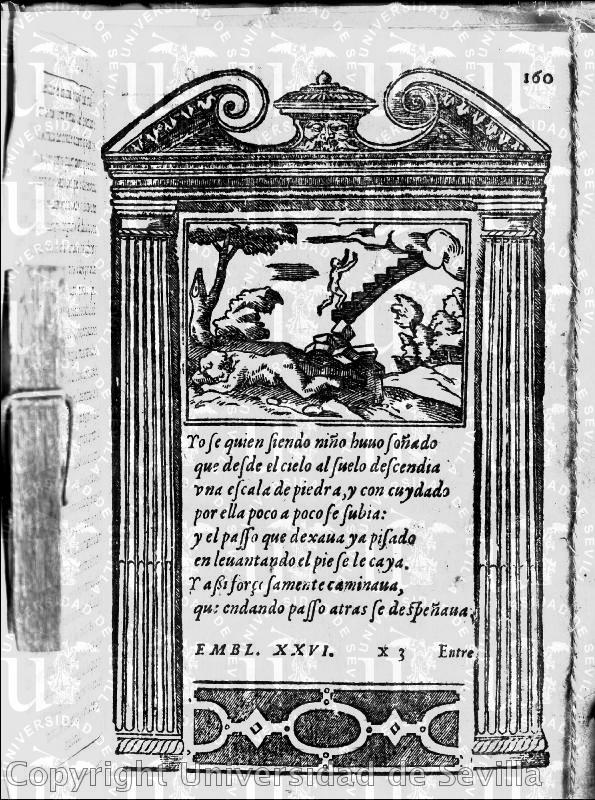 160
Yo se quien siendo niño huuo soñado
que desde el cielo al suelo descendia
vna escala de piedra, y con cuydado
por ella poco a poco se subia:
y el passo que dexaua ya pisado
en leuantando el pie se le caya.
Y assi forçosamente caminaua,
que endando passo atras se despeñaua.
EMBL. XXVI. X 3 Entre
Copyright Universidad de Sevilla